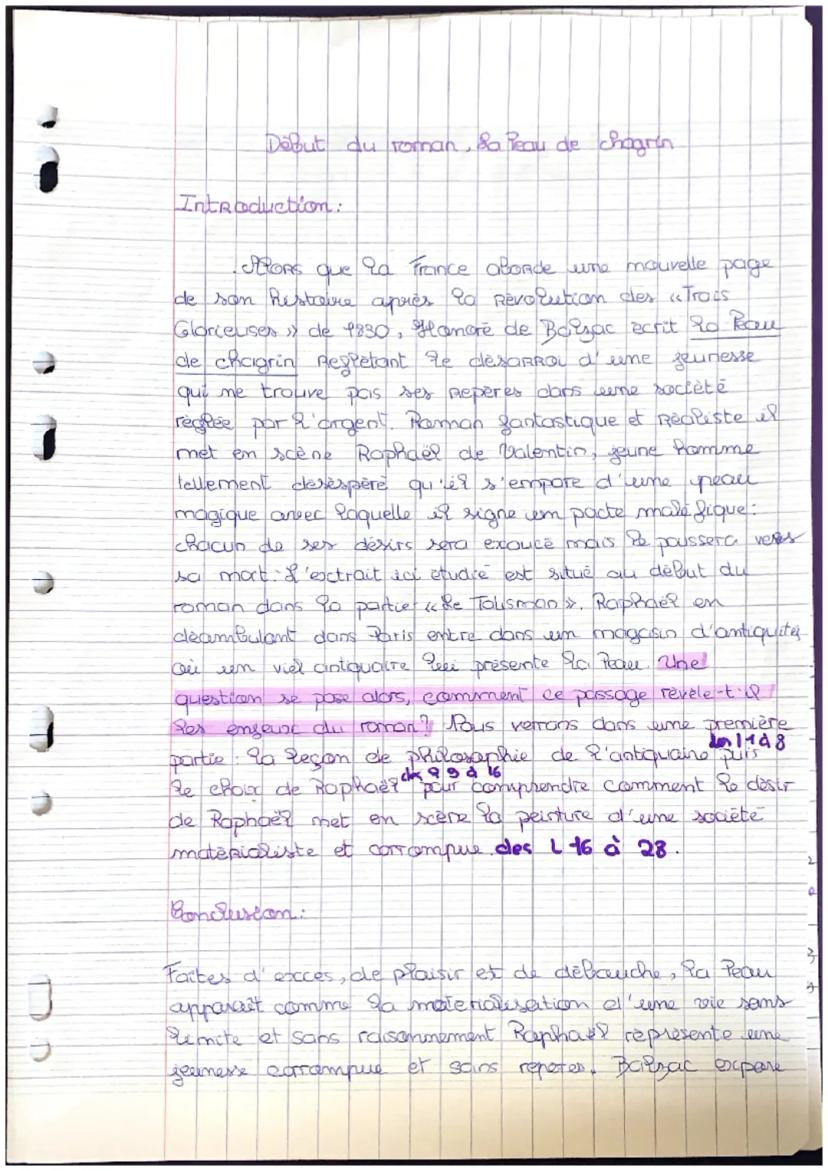 Début du roman, La Peau de chagrin
Introduction:
Alors que la France aborde une nouvelle page
de son histoire après la Révolution des « Trois
Glorieuses » de 1830, Honoré de Balzac écrit La Peau
de chagrin reflétant le désarroi d'une jeunesse
qui ne trouve pas ses repères dans une société
réglée par l'argent. Roman fantastique et réaliste il
met en scène Raphaël de Valentin, jeune homme
tellement désespéré qu'il s'empare d'une peau
magique avec laquelle il signe un pacte maléfique:
chacun de ses désirs sera exaucé mais le poussera vers
sa mort. L'extrait ici étudié est situé au début du
roman dans la partie « Le Talisman ». Raphaël en
déambulant dans Paris entre dans un magasin d'antiquités
où un viel antiquaire lui présente la Peau. Une
question se pose alors, comment ce passage révèle-t-il
les enjeux du roman? Nous verrons dans une première
partie: la leçon de philosophie de l'antiquaire des l 1 à 8 puis
le choix de Raphaël des l 9 à 16 pour comprendre comment le désir
de Raphaël met en scène la peinture d'une société
matérialiste et corrompue des L 16 à 28.
Conclusion:
Faites d'excès, de plaisir et de débauche, la Peau
apparait comme la matérialisation d'une vie sans
limite et sans raisonnement Raphaël représente une
jeunesse corrompue et sans repères. Balzac expose